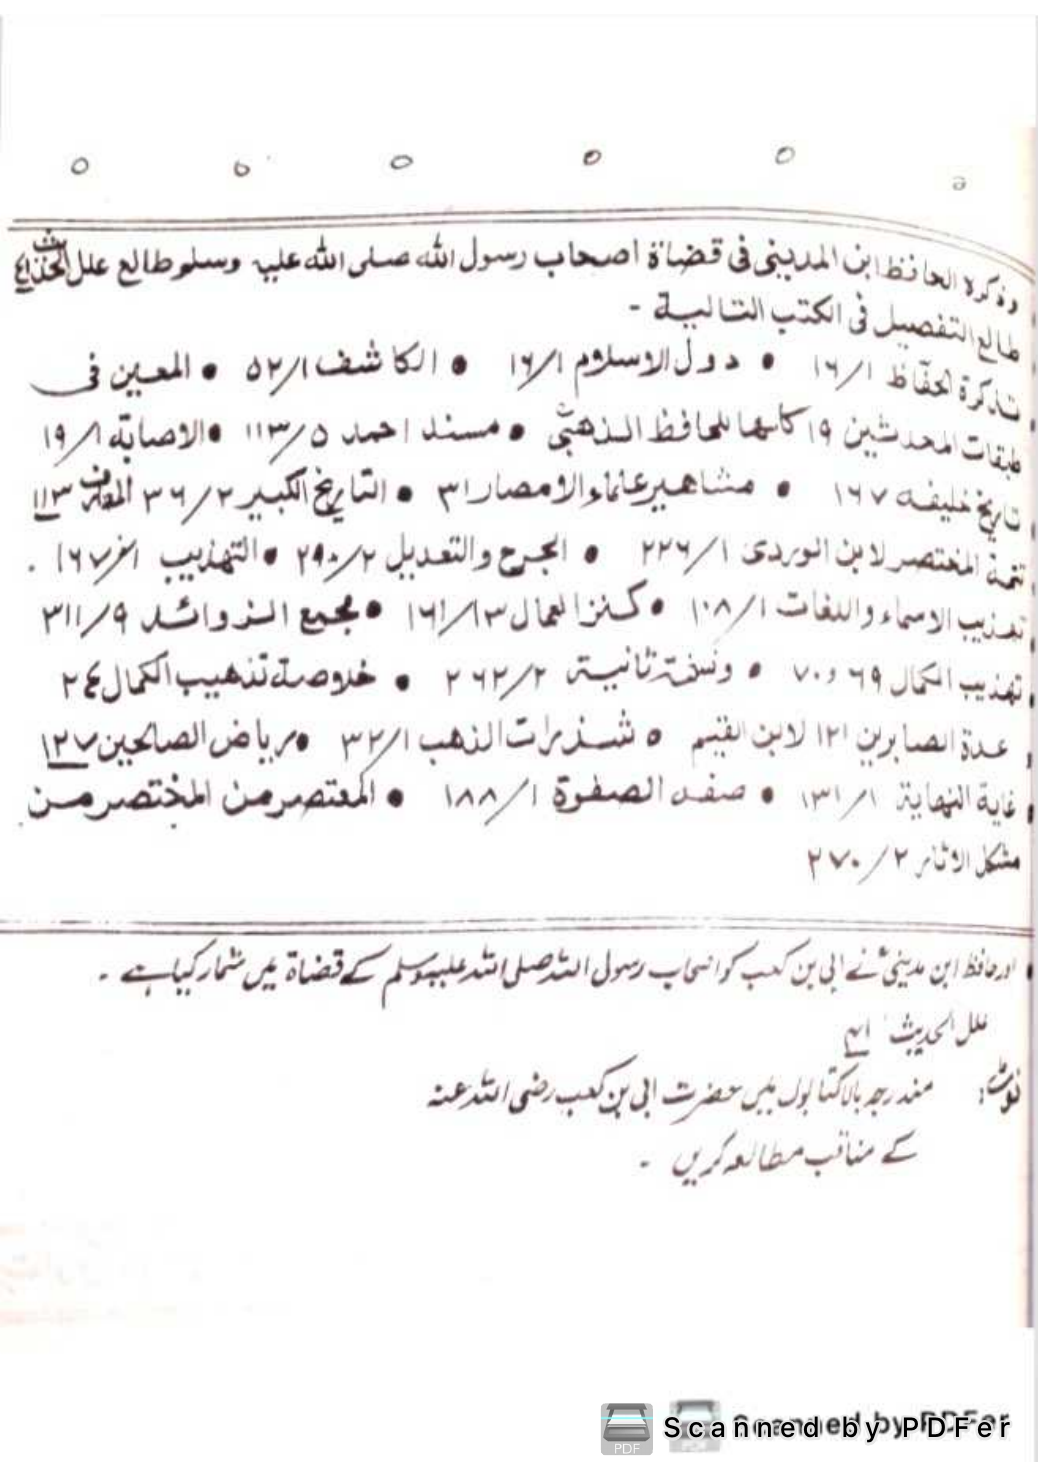 وذكره الحافظ ابن المديني في قضاة اصحاب رسول الله صلى الله عليه وسلم طالع علل الحديث ٤١
طالع التفصيل في الكتب التالية -
تذكرة الحفّاظ ١٦/١ • دول الاسلام ١٦/١ • الكاشف ٥٢/١ • المعين في
طبقات المحدثين ١٩ كلها للحافظ الذهبيّ • مسند احمد ١١٣/٥ • الاصابة ١٩/١
تاريخ خليفه ١٦٧ • مشاهير علماء الامصار ٣١ • التاريخ الكبير ٣٦/٢ المعارف ١١٣
تتمة المختصر لابن الوردى ٢٢٦/١ • الجرح والتعديل ٢٩٠/٢ • التهذيب
تهذيب الاسماء واللغات ١٠٨/١ • كنز العمال ١٦١/١٣ • مجمع الزوائد ٣١١/٩
تهذيب الكمال ٦٩ و ٧٠ • ونسخة ثانية ٢٦٢/٢ • خلاصة تذهيب الكمال ٢٤
عدة الصابرين ١٢١ لابن القيم • شذرات الذهب ٣٢/١ • رياض الصالحين ١٢٧
غاية النهاية ١٣١/١ • صفه الصفوة ١٨٨/١ • المعتصر من المختصر من
مشكل الاثار ٢٧٠/٢
اور حافظ ابن مدینیؒ نے ابی بن کعب کو اصحاب رسول اللہ صلی اللہ علیہ وسلم کے قضاة میں شمار کیا ہے -
علل الحدیث ٤١
نوٹ: مندرجہ بالا کتابوں میں حضرت ابی بن کعب رضی اللہ عنہ
کے مناقب مطالعہ کریں -
Scanned by PDFer